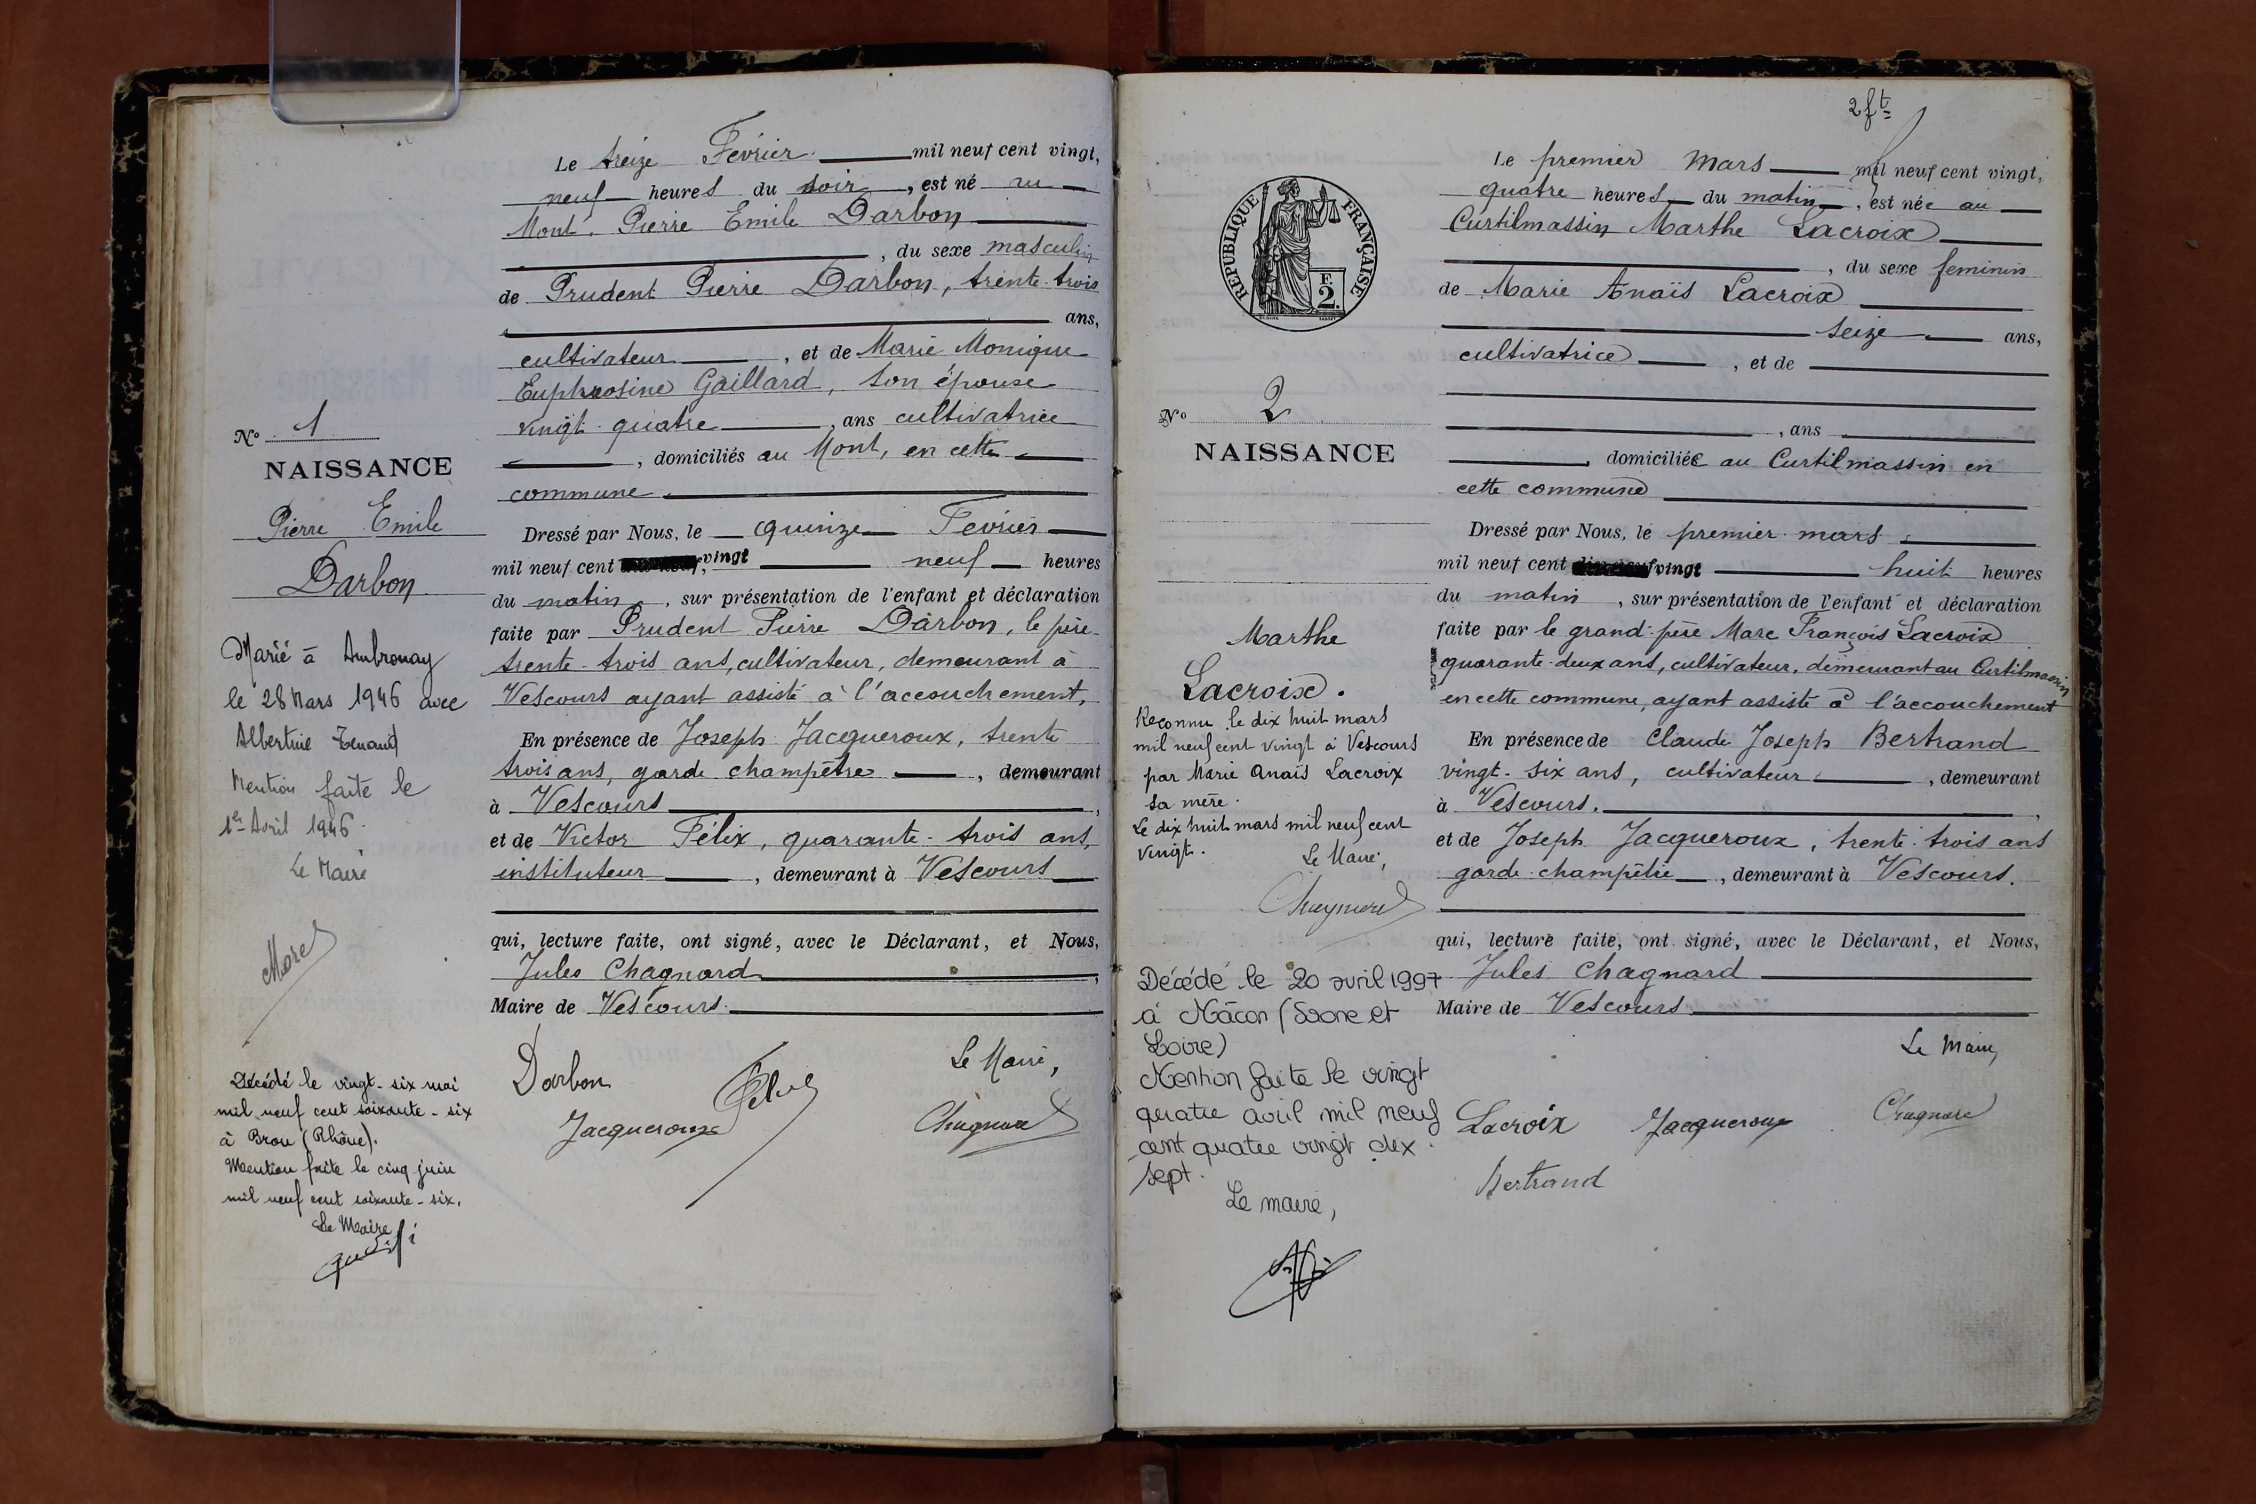 Le treize Février mil neuf cent vingt,
neuf heures du soir, est né au
Mont, Pierre Emile Darbon
, du sexe masculin
de Prudent Pierre Darbon, trente-trois
ans,
cultivateur, et de Marie Monique
Euphrosine Gaillard, son épouse
vingt-quatre, ans cultivatrice
, domiciliés au Mont, en cette
commune
Dressé par Nous, le quinze Février
mil neuf cent vingt neuf heures
du matin, sur présentation de l'enfant et déclaration
faite par Prudent Pierre Darbon, le père
trente-trois ans, cultivateur, demeurant à
Vescours ayant assisté à l'accouchement,
En présence de Joseph Jacqueroux, trente
trois ans, garde champêtre, demeurant
à Vescours,
et de Victor Félix, quarante-trois ans,
instituteur, demeurant à Vescours
qui, lecture faite, ont signé, avec le Déclarant, et Nous,
Jules Chagnard,
Maire de Vescours.
Le Maire,
Darbon
Félix
Jacqueroux
Chagnard
No 1
NAISSANCE
Pierre Emile
Darbon
Marié à Ambronay
le 28 Mars 1946 avec
Albertine Tenand
Mention faite le
1er Avril 1946.
Le Maire
Morel
Décédé le vingt-six mai
mil neuf cent soixante-six
à Bron (Rhône).
Mention faite le cinq juin
mil neuf cent soixante-six.
Le Maire
2 ft
RÉPUBLIQUE FRANÇAISE
F.
2.
Le premier Mars mil neuf cent vingt,
quatre heures du matin, est née au
Curtilmassin Marthe Lacroix
, du sexe feminin
de Marie Anaïs Lacroix
seize ans,
cultivatrice, et de
, ans
domiciliée au Curtilmassin en
cette commune
Dressé par Nous, le premier mars
mil neuf cent vingt huit heures
du matin, sur présentation de l'enfant et déclaration
faite par le grand-père Marc François Lacroix
quarante-deux ans, cultivateur, demeurant au Curtilmassin
en cette commune, ayant assisté à l'accouchement
En présence de Claude Joseph Bertrand
vingt-six ans, cultivateur, demeurant
à Vescours.,
et de Joseph Jacqueroux, trente-trois ans
garde-champêtre, demeurant à Vescours.
qui, lecture faite, ont signé, avec le Déclarant, et Nous,
Jules Chagnard
Maire de Vescours
Le Maire,
Lacroix
Jacqueroux
Chagnard
Bertrand
No 2
NAISSANCE
Marthe
Lacroix.
Reconnu le dix huit mars
mil neuf cent vingt à Vescours
par Marie Anaïs Lacroix
sa mère.
Le dix huit mars mil neuf cent
vingt.
Le Maire,
Chagnard
Décédé le 20 avril 1997
à Mâcon (Saone et
Loire)
Mention faite le vingt
quatre avril mil neuf
cent quatre vingt dix
sept.
Le maire,